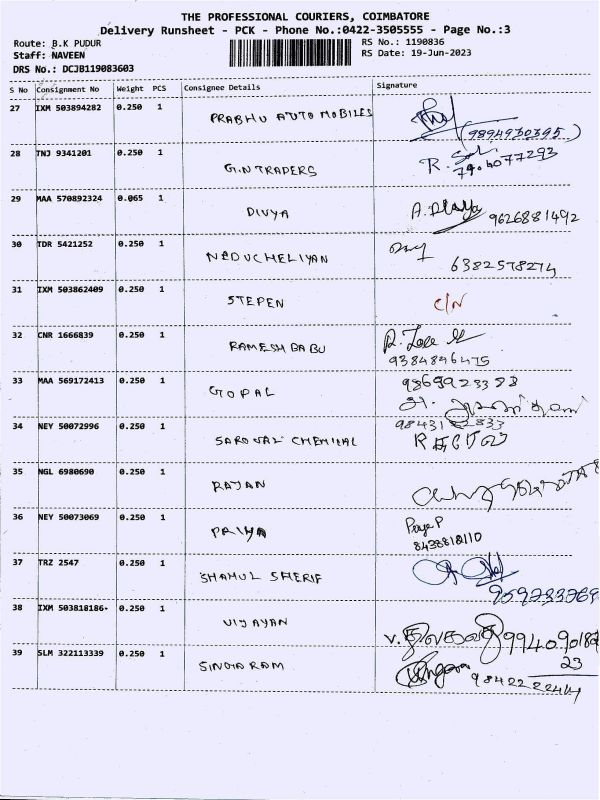 THE PROFESSIONAL COURIERS, COIMBATORE
Delivery Runsheet - PCK - Phone No.:0422-3505555 - Page No.:3
Route: B.K PUDUR RS No.: 1190836
Staff: NAVEEN RS Date: 19-Jun-2023
DRS No.: DCJB119083603
S No Consignment No Weight PCS Consignee Details Signature
27 IXM 503894282 0.250 1 PRABHU AUTO MOBILES
(9894930395)
28 TNJ 9341201 0.250 1 G.N TRADERS
29 MAA 570892324 0.065 1 DIVYA 9626881492
30 TDR 5421252 0.250 1 NEDUCHELIYAN 6382578274
31 IXM 503862409 0.250 1 STEPEN C/N
32 CNR 1666839 0.250 1 RAMESH BABU
9384846475
33 MAA 569172413 0.250 1 GOPAL
34 NEY 50072996 0.250 1 SAROJAL CHEMICAL
35 NGL 6980690 0.250 1 RAJAN
36 NEY 50073069 0.250 1 PRIYA Priya P
8438818110
37 TRZ 2547 0.250 1 SHAHUL SHERIF
38 IXM 503818186 0.250 1 VIJAYAN 99409018
23
39 SLM 322113339 0.250 1 SINGARAM